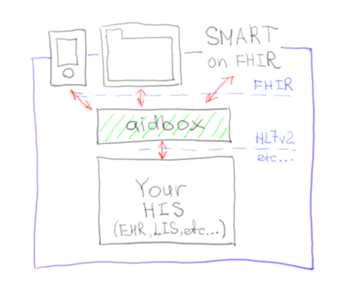 SMART
on FHIR
FHIR
aidbox
HL7v2
etc...
Your
HIS
(EHR,LIS,etc...)